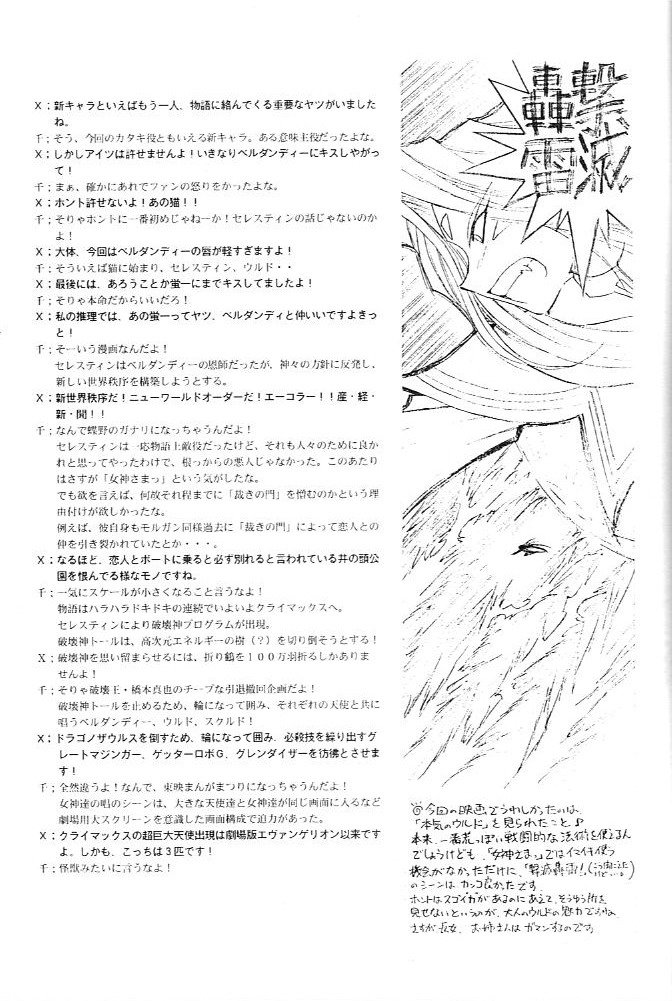 X;新キャラといえばもう一人、物語に絡んでくる重要なヤツがいました
ね。
千;そう、今回のカタキ役ともいえる新キャラ。ある意味主役だったよな。
X;しかしアイツは許せませんよ!いきなりベルダンディーにキスしやがっ
て!
千;まぁ、確かにあれでファンの怒りをかったよな。
X;ホント許せないよ!あの猫!!
千;そりゃホントに一番初めじゃねーか!セレスティンの話じゃないのか
よ!
X;大体、今回はベルダンディーの唇が軽すぎますよ!
千;そういえば猫に始まり、セレスティン、ウルド・・
X;最後には、あろうことか蛍一にまでキスしてましたよ!
千;そりゃ本命だからいいだろ!
X;私の推理では、あの蛍一ってヤツ、ベルダンディと仲いいですよきっ
と!
千;そーいう漫画なんだよ!
セレスティンはベルダンディーの恩師だったが、神々の方針に反発し、
新しい世界秩序を構築しようとする。
X;新世界秩序だ!ニューワールドオーダーだ!エーコラー!!産・経・
新・聞!!
千;なんで蝶野のガナリになっちゃうんだよ!
セレスティンは一応物語上敵役だったけど、それも人々のために良か
れと思ってやったわけで、根っからの悪人じゃなかった。このあたり
はさすが「女神さまっ」という気がしたな。
でも欲を言えば、何故それ程までに「裁きの門」を憎むのかという理
由付けが欲しかったな。
例えば、彼自身もモルガン同様過去に「裁きの門」によって恋人との
仲を引き裂かれていたとか・・・。
X;なるほど、恋人とボートに乗ると必ず別れると言われている井の頭公
園を恨んでる様なモノですね。
千;一気にスケールが小さくなること言うなよ!
物語はハラハラドキドキの連続でいよいよクライマックスへ。
セレスティンにより破壊神プログラムが出現。
破壊神トールは、高次元エネルギーの樹(?)を切り倒そうとする!
X;破壊神を思い留まらせるには、折り鶴を100万羽折るしかありま
せんよ!
千;そりゃ破壊王・橋本真也のチープな引退撤回企画だよ!
破壊神トールを止めるため、輪になって囲み、それぞれの天使と共に
唱うベルダンディー、ウルド、スクルド!
X;ドラゴノザウルスを倒すため、輪になって囲み、必殺技を繰り出すグ
レートマジンガー、ゲッターロボG、グレンダイザーを彷彿とさせま
す!
千;全然違うよ!なんで、東映まんがまつりになっちゃうんだよ!
女神達の唱のシーンは、大きな天使達と女神達が同じ画面に入るなど
劇場用大スクリーンを意識した画面構成で迫力があった。
X;クライマックスの超巨大天使出現は劇場版エヴァンゲリオン以来です
よ。しかも、こっちは3匹です!
千;怪獣みたいに言うなよ!
撃滅
轟雷
今回の映画でうれしかったのは、
「本気のウルド」を見られたこと♪
本来、一番荒っぽい戦闘的な法術を使えるん
でしょうけども、「女神さまっ」ではイマイチ使う
機会がなかっただけに、「撃滅轟雷!」
のシーンは、カッコ良かったです。
ホントはスゴイ力があるのにあえて、そうゆう所を
見せないというのが、大人のウルドの魅力ですよね。
さすが長女、お姉さんはガマンするのです